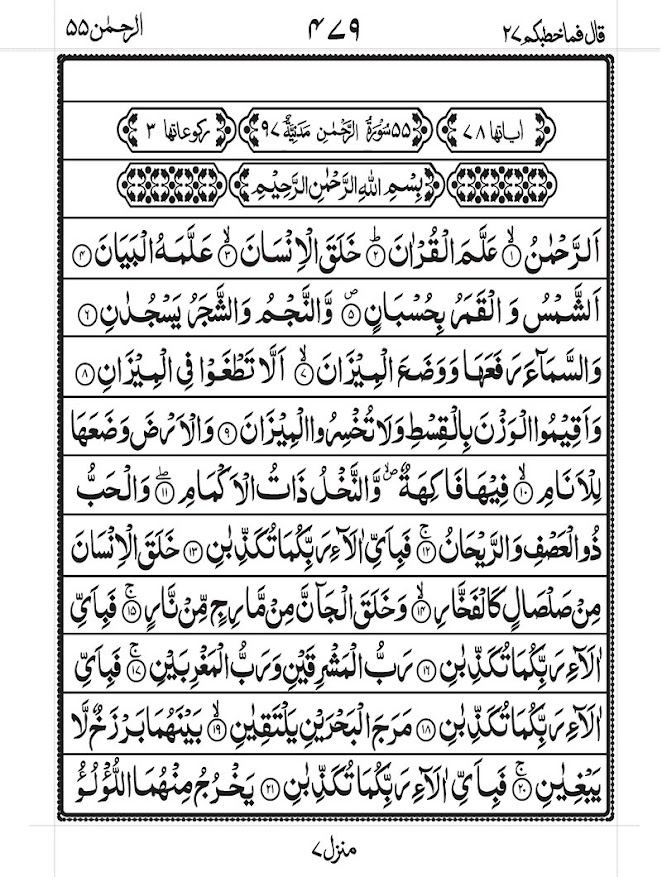 قال فما خطبكم ٢٧ ٤٧٩ الرحمٰن ٥٥
اٰیاتها ٧٨ ٥٥ سُوْرَةُ الرَّحْمٰنِ مَدَنِیَّةٌ ٩٧ رکوعاتها ٣
بِسْمِ اللّٰهِ الرَّحْمٰنِ الرَّحِیْمِ
اَلرَّحْمٰنُ ۙ﴿۱﴾ عَلَّمَ الْقُرْاٰنَ ؕ﴿۲﴾ خَلَقَ الْاِنْسَانَ ۙ﴿۳﴾ عَلَّمَهُ الْبَیَانَ ﴿۴﴾
اَلشَّمْسُ وَ الْقَمَرُ بِحُسْبَانٍ ۪﴿۵﴾ وَّ النَّجْمُ وَ الشَّجَرُ یَسْجُدٰنِ ﴿۶﴾
وَ السَّمَآءَ رَفَعَهَا وَ وَضَعَ الْمِیْزَانَ ۙ﴿۷﴾ اَلَّا تَطْغَوْا فِی الْمِیْزَانِ ﴿۸﴾
وَ اَقِیْمُوا الْوَزْنَ بِالْقِسْطِ وَ لَا تُخْسِرُوا الْمِیْزَانَ ﴿۹﴾ وَ الْاَرْضَ وَضَعَهَا
لِلْاَنَامِ ۙ﴿۱۰﴾ فِیْهَا فَاكِهَةٌ ۪ۙ وَّ النَّخْلُ ذَاتُ الْاَكْمَامِ ۖ﴿۱۱﴾ وَ الْحَبُّ
ذُو الْعَصْفِ وَ الرَّیْحَانُ ۚ﴿۱۲﴾ فَبِاَیِّ اٰلَآءِ رَبِّكُمَا تُكَذِّبٰنِ ﴿۱۳﴾ خَلَقَ الْاِنْسَانَ
مِنْ صَلْصَالٍ كَالْفَخَّارِ ۙ﴿۱۴﴾ وَ خَلَقَ الْجَآنَّ مِنْ مَّارِجٍ مِّنْ نَّارٍ ۚ﴿۱۵﴾ فَبِاَیِّ
اٰلَآءِ رَبِّكُمَا تُكَذِّبٰنِ ﴿۱۶﴾ رَبُّ الْمَشْرِقَیْنِ وَ رَبُّ الْمَغْرِبَیْنِ ۚ﴿۱۷﴾ فَبِاَیِّ
اٰلَآءِ رَبِّكُمَا تُكَذِّبٰنِ ﴿۱۸﴾ مَرَجَ الْبَحْرَیْنِ یَلْتَقِیٰنِ ۙ﴿۱۹﴾ بَیْنَهُمَا بَرْزَخٌ لَّا
یَبْغِیٰنِ ۚ﴿۲۰﴾ فَبِاَیِّ اٰلَآءِ رَبِّكُمَا تُكَذِّبٰنِ ﴿۲۱﴾ یَخْرُجُ مِنْهُمَا اللُّؤْلُؤُ
منزل ٧